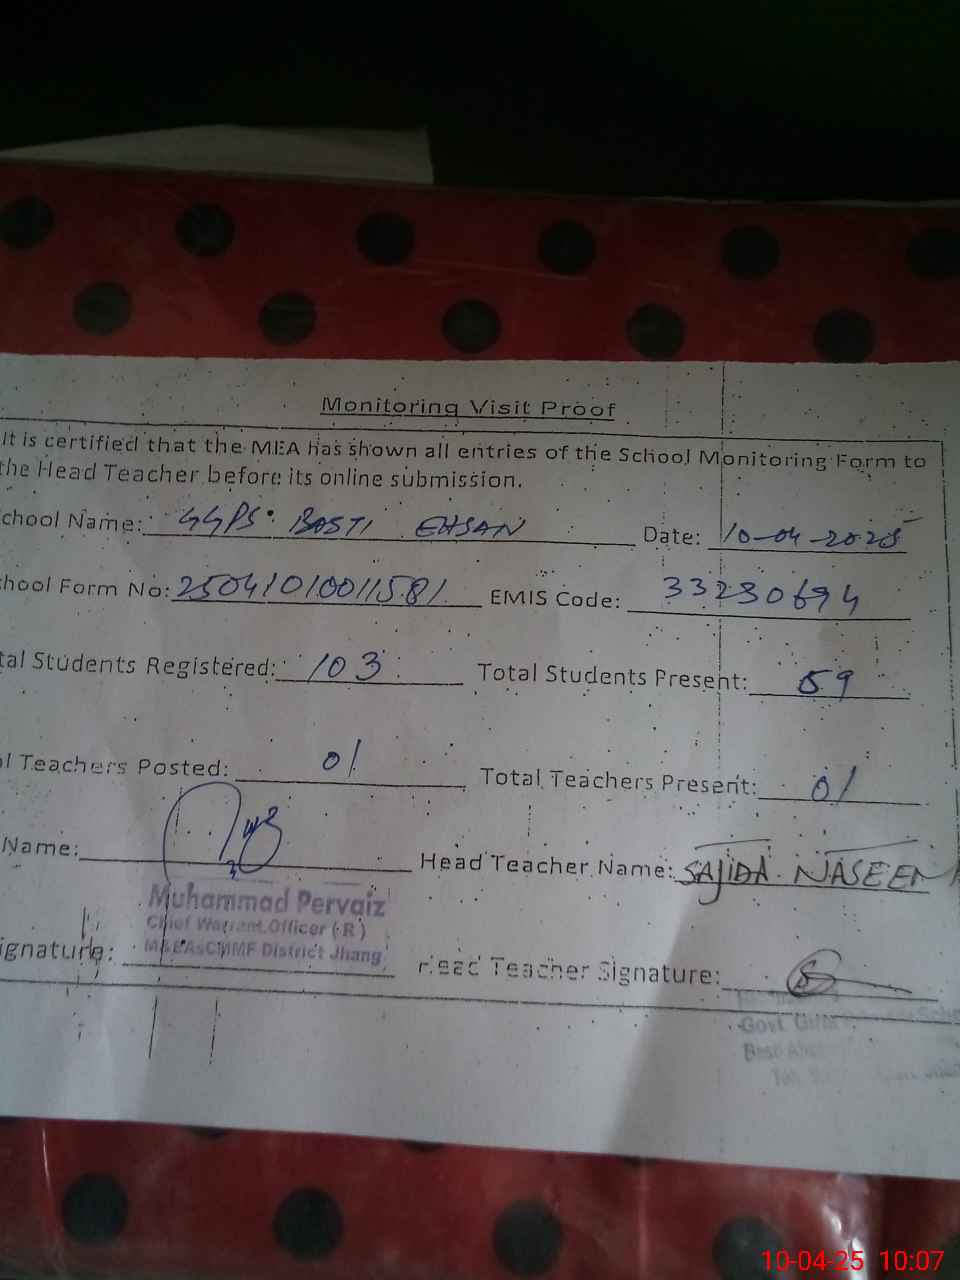 Monitoring Visit Proof
It is certified that the MEA has shown all entries of the School Monitoring Form to
the Head Teacher before its online submission.
chool Name: GGPS BASTI EHSAN Date: 10-04-2025
hool Form No: 25041010011581 EMIS Code: 33230694
tal Students Registered: 103 Total Students Present: 59
l Teachers Posted: 01 Total Teachers Present: 01
Name: Head Teacher Name: SAJIDA NASEEM
Muhammad Pervaiz
Chief Warrant Officer (R)
District Jhang
ignature: Head Teacher Signature:
Govt
Basti
10-04-25 10:07